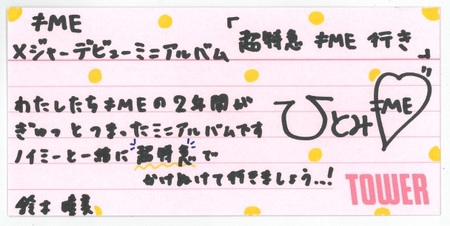 ≠ME
メジャーデビューミニアルバム 「超特急 ≠ME 行き」
わたしたち≠MEの2年間が
ぎゅっとつまったミニアルバムです
ノイミーと一緒に超特急で
かけぬけて行きましょう..!
鈴木 瞳美
ひとみ
≠ME
TOWER